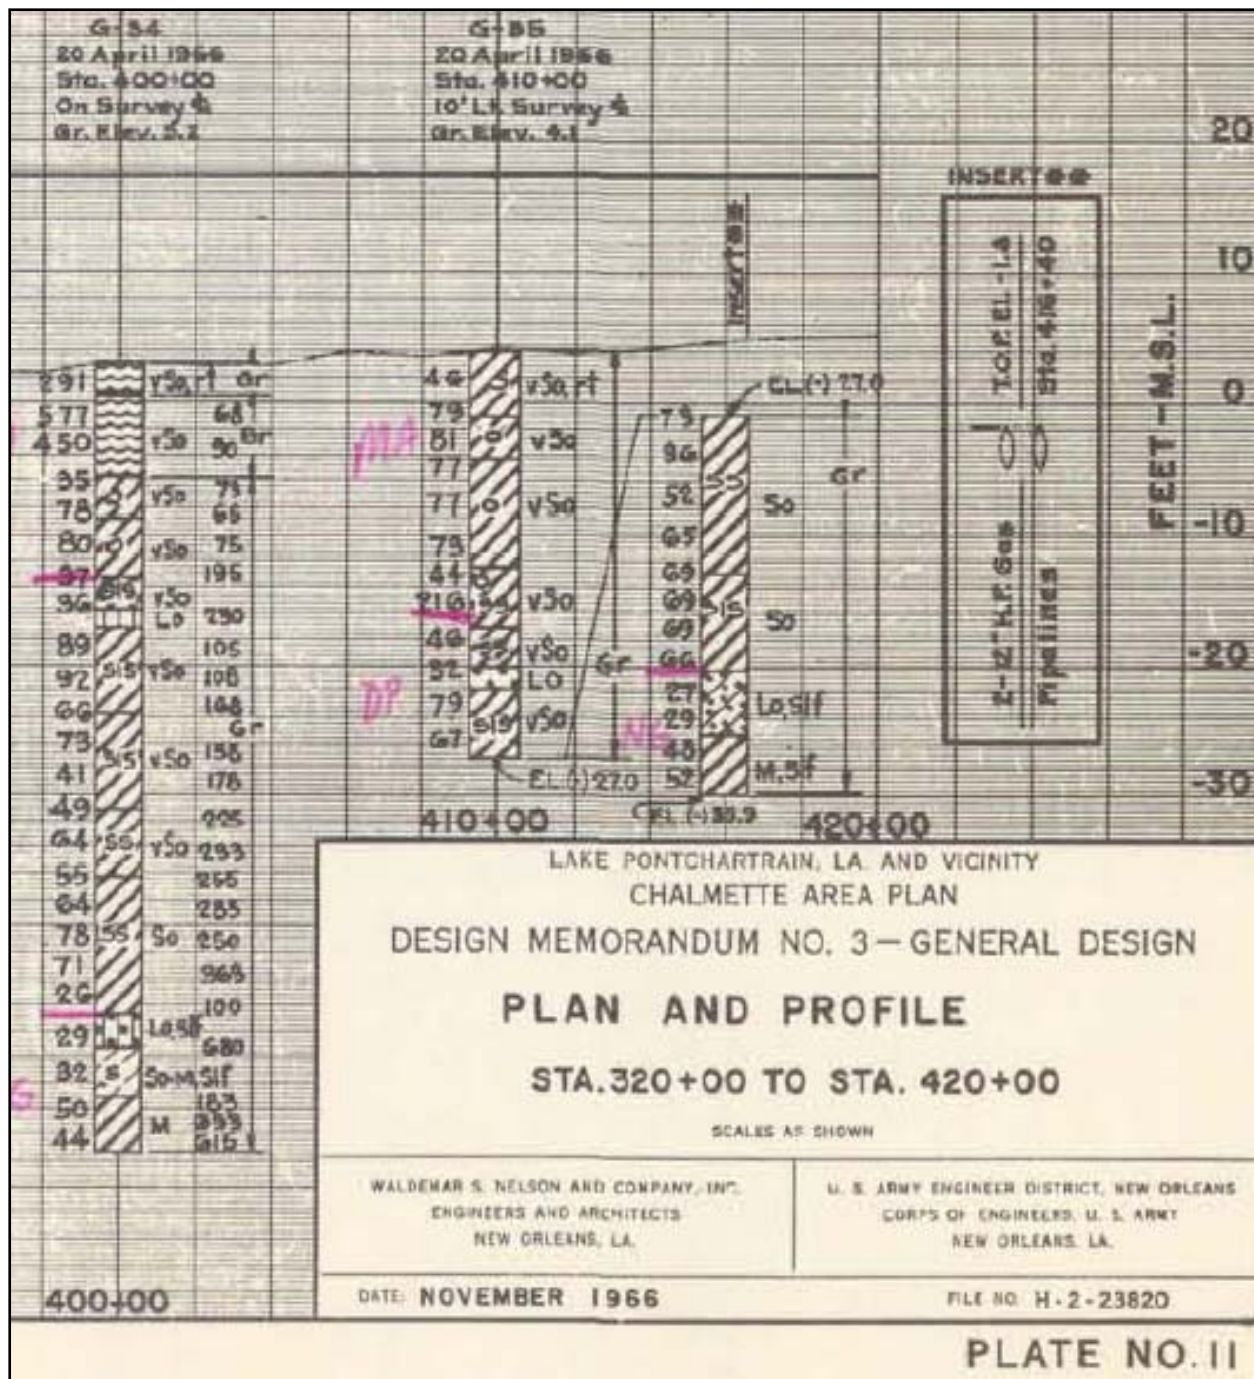 G-34
20 April 1966
Sta. 400+00
On Survey ℄
Gr. Elev. 5.2
G-35
20 April 1966
Sta. 410+00
10' Lt. Survey ℄
Gr. Elev. 4.1
20
10
0
-10
-20
-30
FEET-M.S.L.
INSERT
Insert
T.O.P. EL. -1.4
Sta. 416+40
2-12" H.P. Gas
Pipelines
291 vSo, rt Gr
577 68
450 vSo 90 Br
35 vSo 75
78 65
80 vSo 75
37 SIS 195
36 vSo
Lo 290
89 105
92 SIS vSo 108
66 Gr
73 SIS vSo 158
41 178
49 225
64 SS vSo 293
55 265
64 285
78 SS So 250
71 368
26 100
29 Lo, Sif 680
32 S So-M, Sif
50 183
44 M 615
400+00
MA
DP
46 vSo, rt
79
81 O vSo
77
77 O vSo
73
44
216 vSo
46 vSo
32 LO
79 SIS vSo
67
Gr
EL.(-)27.0
410+00
EL(-)27.0
73
96 SS
52 So
65
69
69 SIS So
69
66
27 Lo, Sif
29
48
52 M, Sif
Gr
NG
EL (-)35.9
420+00
LAKE PONTCHARTRAIN, LA. AND VICINITY
CHALMETTE AREA PLAN
DESIGN MEMORANDUM NO. 3—GENERAL DESIGN
PLAN AND PROFILE
STA.320+00 TO STA. 420+00
SCALES AS SHOWN
WALDEMAR S. NELSON AND COMPANY, INC.
ENGINEERS AND ARCHITECTS
NEW ORLEANS, LA.
U. S. ARMY ENGINEER DISTRICT, NEW ORLEANS
CORPS OF ENGINEERS, U. S. ARMY
NEW ORLEANS, LA.
DATE: NOVEMBER 1966
FILE NO. H-2-23820
PLATE NO. 11